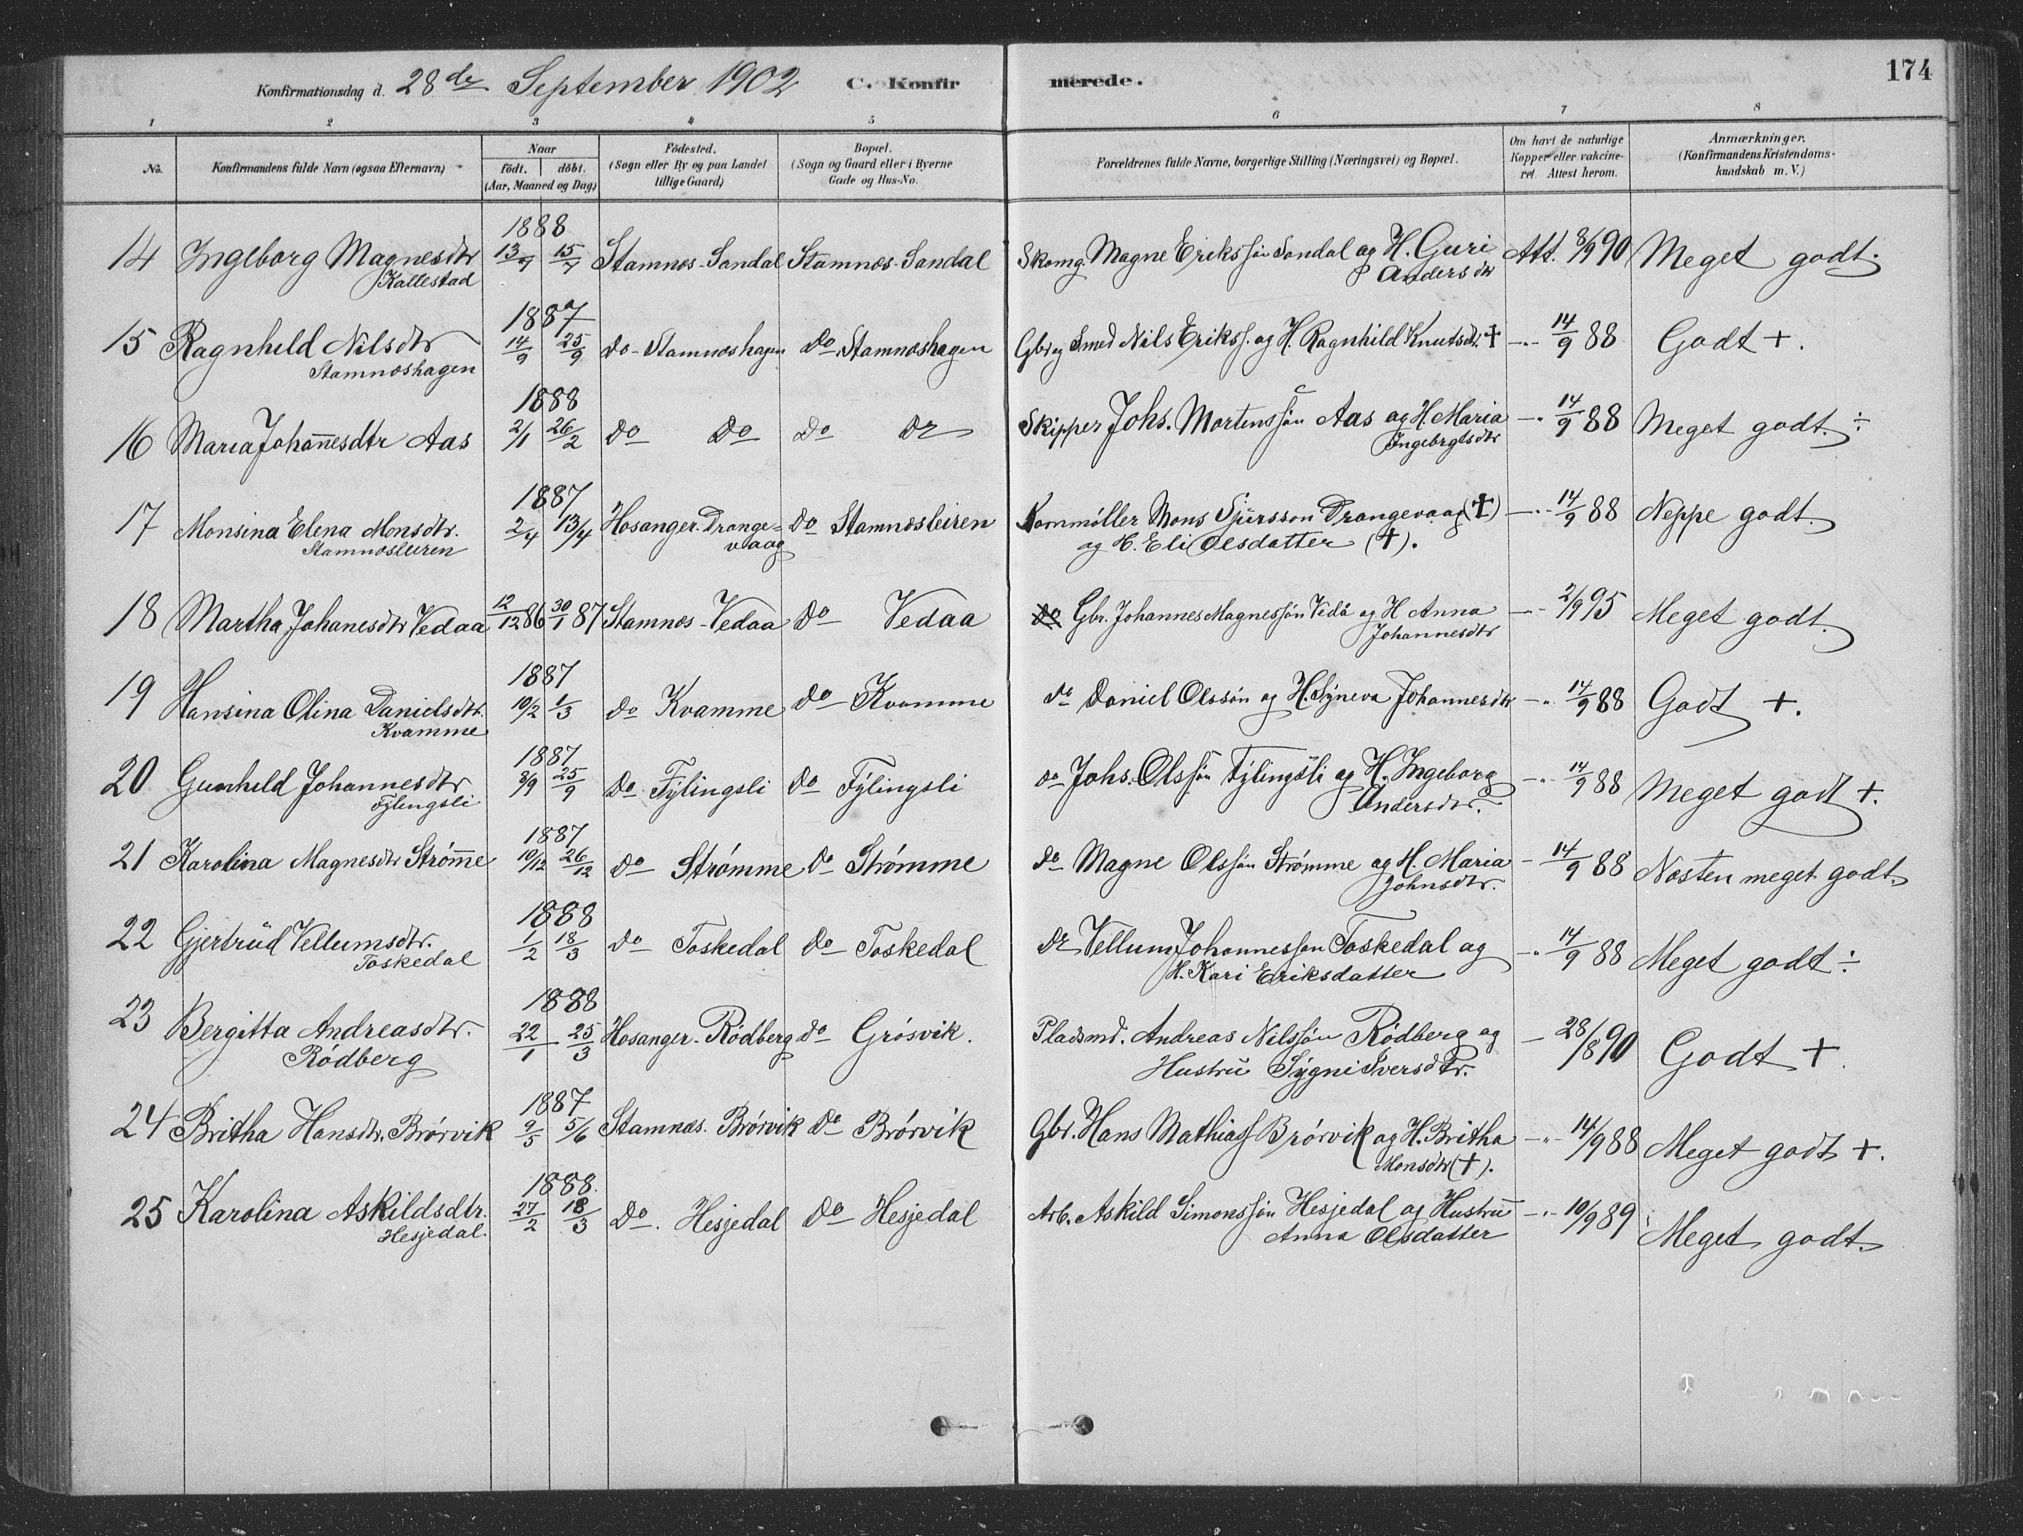 Konfirmationsdag d. 28de September 1902 C. Konfirmerede. 174
1 2 3 4 5 6 7 8
No. Konfirmandens fulde Navn (ogsaa Efternavn) Naar födt. döbt. (Aar, Maaned og Dag) Födested. (Sogn eller By og paa Landet tillige Gaard) Bopæl. (Sogn og Gaard eller i Byerne Gade og Hus-No. Forældrenes fulde Navne, borgerlige Stilling (Næringsvei) og Bopæl. Om havt de naturlige Kopper eller vakcineret. Attest herom. Anmærkninger. (Konfirmandens Kristendomskundskab m. V.)
1888
14 Ingeborg Magnesdtr 13/7 15/7 Stamnes-Sandal Stamnes-Sandal Skomg Magne Erikssøn Sandal og H. Guri Att. 8/9 90 Meget godt.
Kallestad Andersdtr
1887
15 Ragnhild Nilsdtr 14/9 25/9 do - Stamneshagen do Stamneshagen Gbr og Smed Nils Erikss. og H. Ragnhild Knutsdtr. † -"- 14/9 88 Godt +.
Stamneshagen
1888
16 Maria Johannesdtr Aas 2/1 26/2 do do do do Skipper Johs. Mortenssøn Aas og H. Maria -"- 14/9 88 Meget godt. ÷
Ingebrgtsdtr
1887
17 Monsina Elena Monsdtr. 2/4 13/4 Hosanger. Drange- do Stamnesleiren Kornmøller Mons Sjursson Drangevaag (†) -"- 14/9 88 Neppe godt.
Stamnesleiren vaag og H. Eli Olsdatter (†).
18 Martha Johanesdtr Vedaa 12/12 86 30/1 87 Stamnes - Vedaa do Vedaa Gbr. Johannes Magnessøn Vedå og H Anna -"- 2/9 95 Meget godt.
Johannesdtr
1887
19 Hansina Olina Danielsdtr. 10/2 1/3 do Kvamme do Kvamme do Daniel Olssøn og H. Syneva Johannesdtr -"- 14/9 88 Godt +.
Kvamme
1887
20 Gunhild Johannesdtr 8/9 25/9 do Fylingsli do Fylingsli do Johs. Olssøn Fylingsli og H. Ingeborg -"- 14/9 88 Meget godt +.
Fylingsli Andersdtr.
1887
21 Karolina Magnesdtr Strømme 10/12 26/12 do Strømme do Strømme do Magne Olssøn Strømme og H. Maria - 14/9 88 Næsten meget godt.
Johnsdtr.
1888
22 Gjertrud Vellumsdtr. 1/2 18/3 do Toskedal do Toskedal do Vellum Johannessøn Toskedal og -"- 14/9 88 Meget godt ÷
Toskedal H. Kari Eriksdatter
1888
23 Bergitta Andreasdtr. 22/1 25/3 Hosanger. Rødberg do Grøsvik. Pladsmd. Andreas Nilssøn Rødberg og - 28/8 90 Godt +.
Rødberg Hustru Sygni Iversdtr.
1887
24 Britha Hansdtr. Brørvik 9/5 5/6 Stamnes. Brørvik do Brørvik Gbr. Hans Mathiass Brørvik og H. Britha -"- 14/9 88 Meget godt +.
Monsdtr (†).
1888.
25 Karolina Askildsdtr. 27/2 18/3 do. Hesjedal do Hesjedal Arb. Askild Simonssøn Hesjedal og Hustru -"- 10/9 89 Meget godt.
Hesjedal. Anna Olsdatter